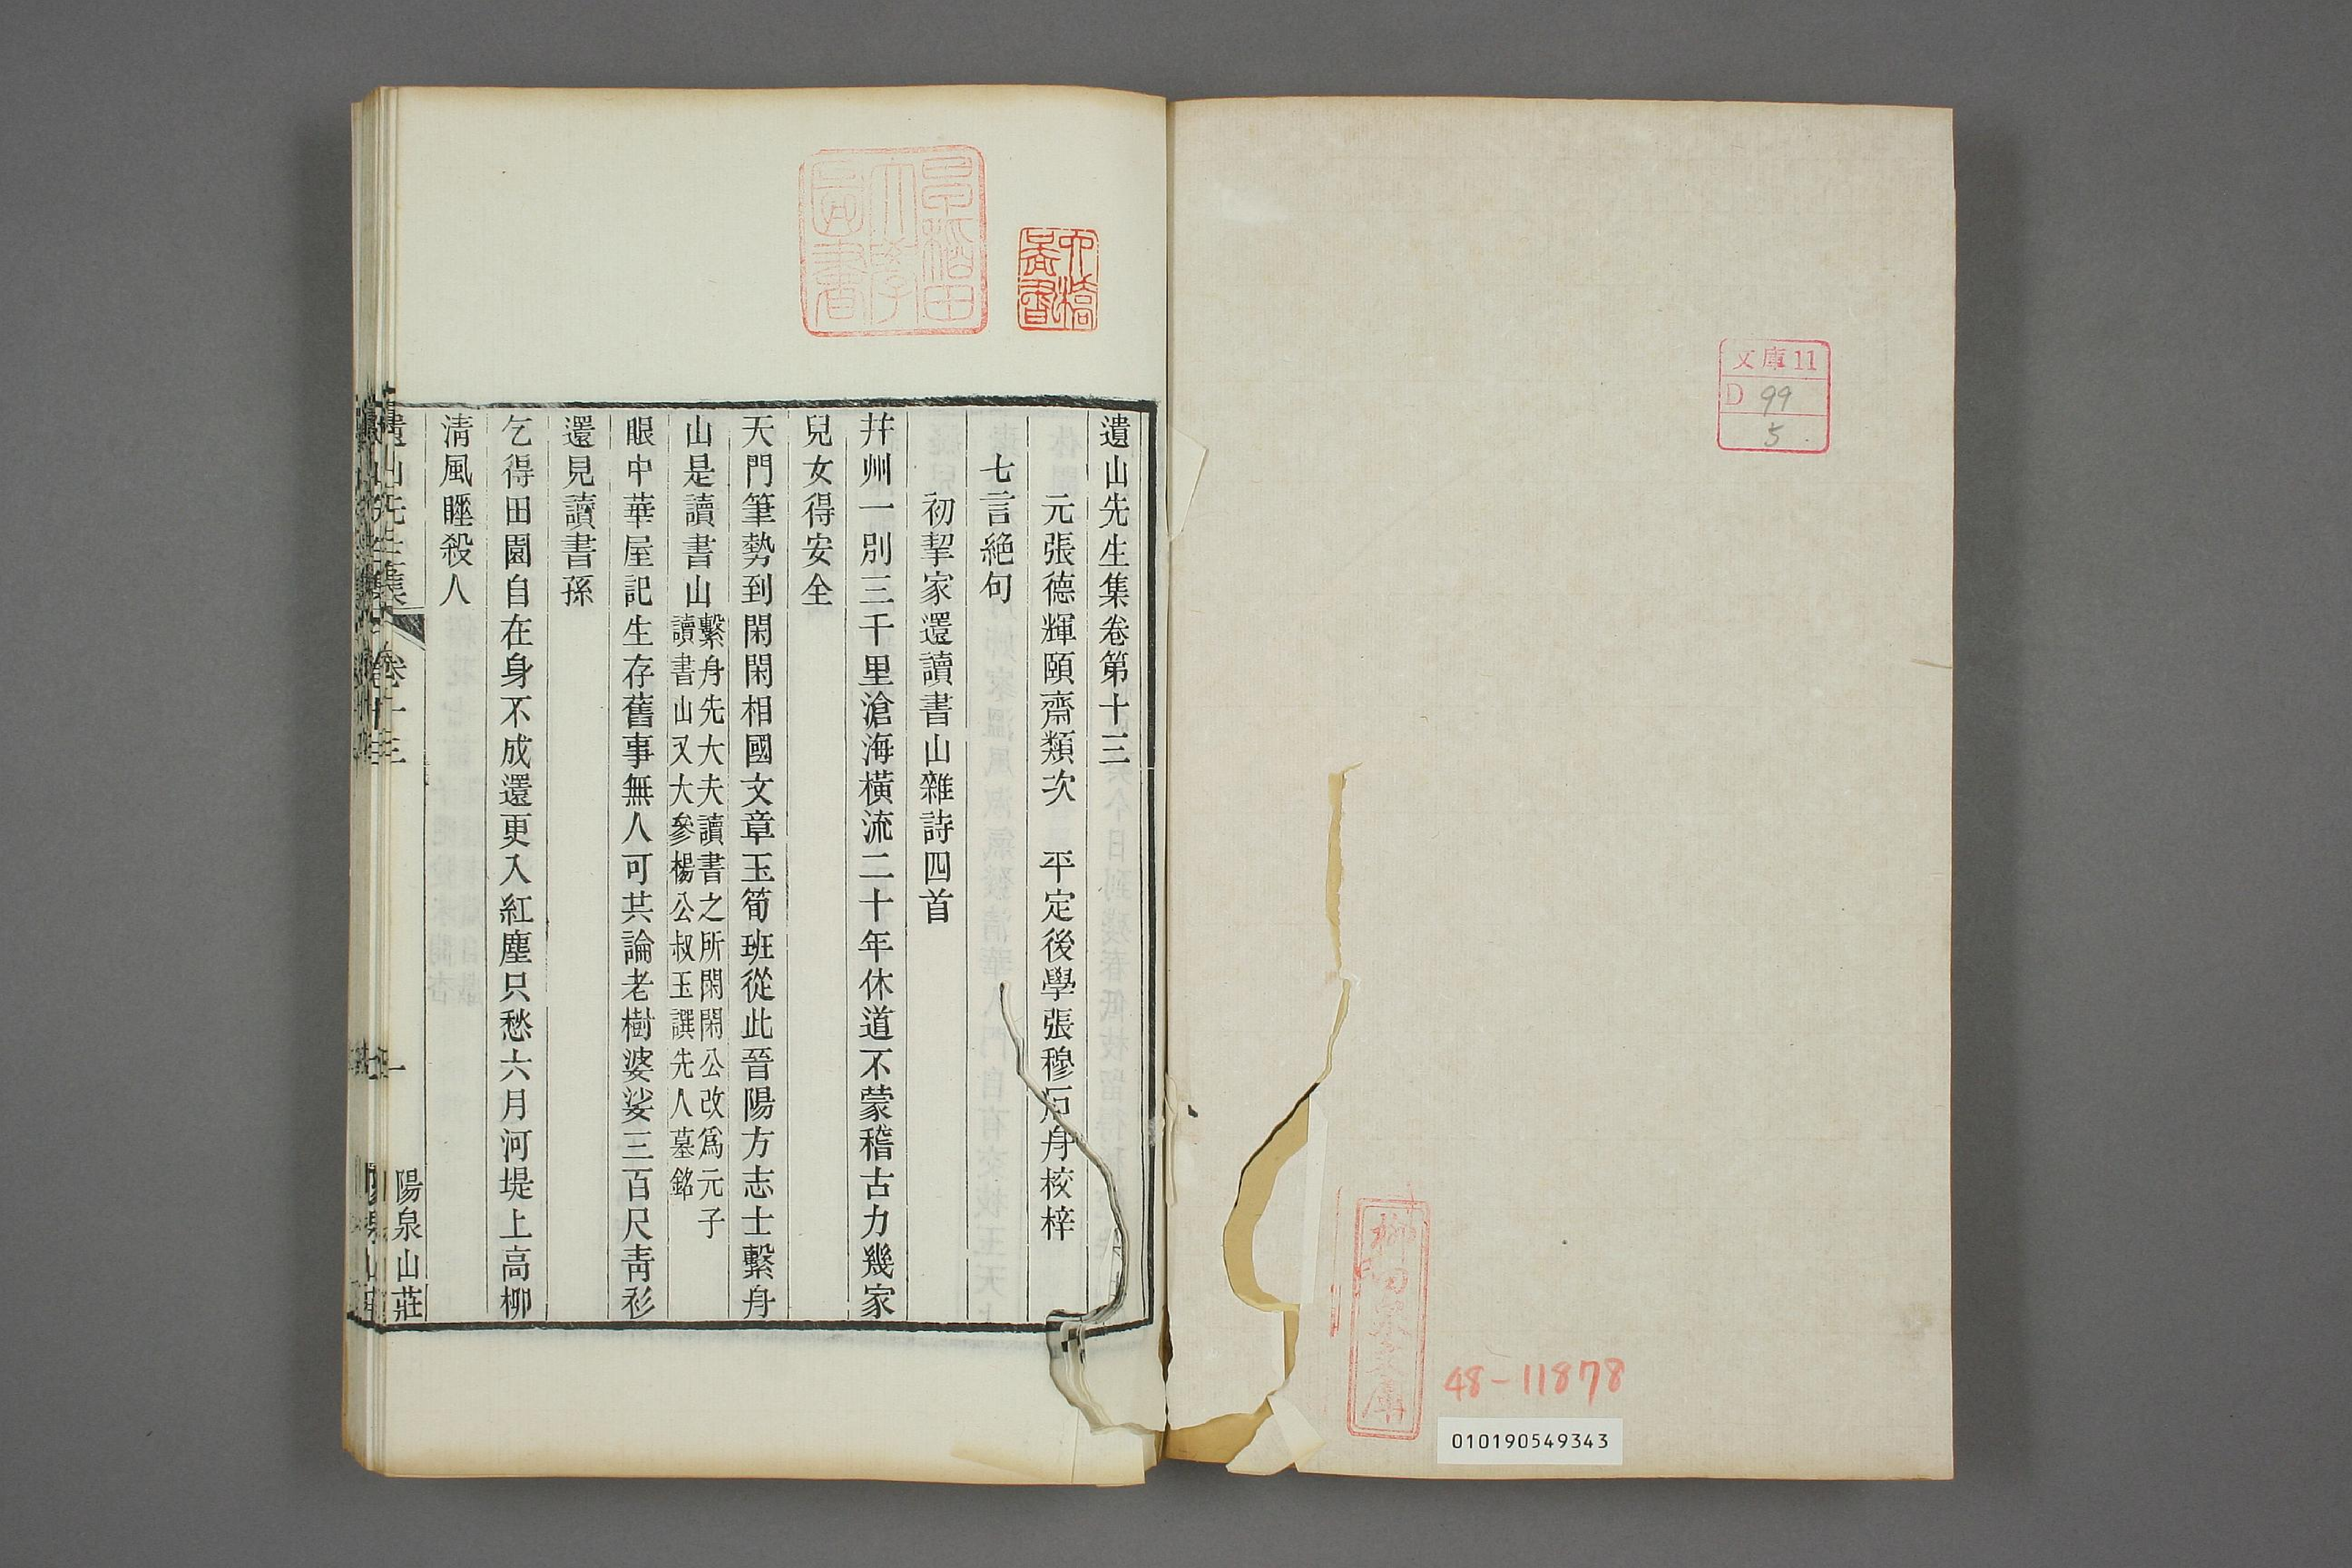 文庫11
D 99
5
48-11878
010190549343
早稲田大學圖書
遺山先生集卷第十三
元張德輝頤齋類次　平定後學張穆石舟校梓
七言絕句
初挈家還讀書山雜詩四首
幷州一別三千里滄海橫流二十年休道不蒙稽古力幾家
兒女得安全
天門筆勢到閑閑相國文章玉筍班從此晉陽方志士繫舟
山是讀書山
繫舟先大夫讀書之所閑閑公改爲元子
讀書山又大參楊公叔玉譔先人墓銘
眼中華屋記生存舊事無人可共論老樹婆娑三百尺靑衫
還見讀書孫
乞得田園自在身不成還更入紅塵只愁六月河堤上高柳
清風睡殺人
遺山先生集　卷十三　一　陽泉山莊